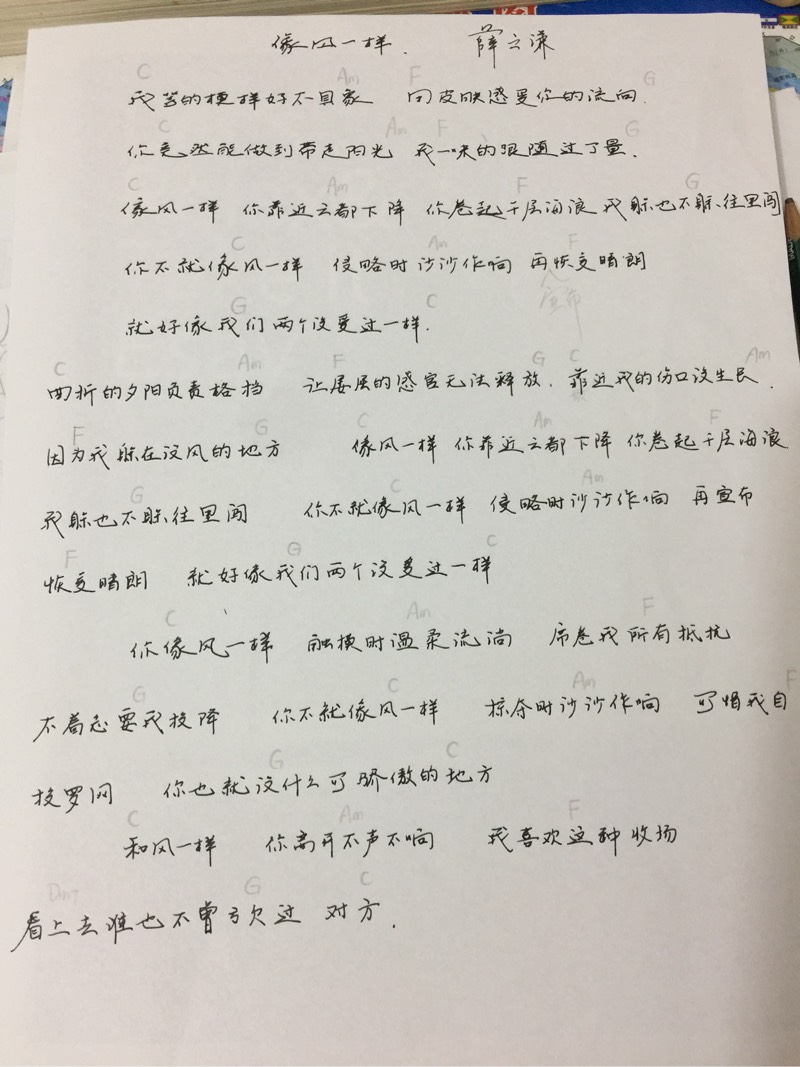 像风一样. 薛之谦
C Am F G
我等的模样好不具象 用皮肤感受你的流向.
C Am F G
你竟然能做到带走阳光 我一味的跟随过了量.
C Am F G
像风一样 你靠近云都下降 你卷起千层海浪 我躲也不躲 往里闯
C Am F
你不就像风一样 侵略时沙沙作响 再恢复晴朗
宣布
G C
就好像我们两个没爱过一样.
C Am F G C Am
曲折的夕阳负责格挡 让屡屡的感官无法释放. 靠近我的伤口没生长.
F G C Am F
因为我躲在没风的地方 像风一样 你靠近云都下降 你卷起千层海浪
G C Am
我躲也不躲 往里闯 你不就像风一样 侵略时沙沙作响 再宣布
F G C
恢复晴朗 就好像我们两个没爱过一样
C Am F
你像风一样 触摸时温柔流淌 席卷我所有抵抗
G C Am F
不着急要我投降 你不就像风一样 掠夺时沙沙作响 可惜我自
G C
投罗网 你也就没什么可骄傲的地方
C Am F
和风一样 你离开不声不响 我喜欢这种收场
Dm7 G C
看上去谁也不曾亏欠过 对方.